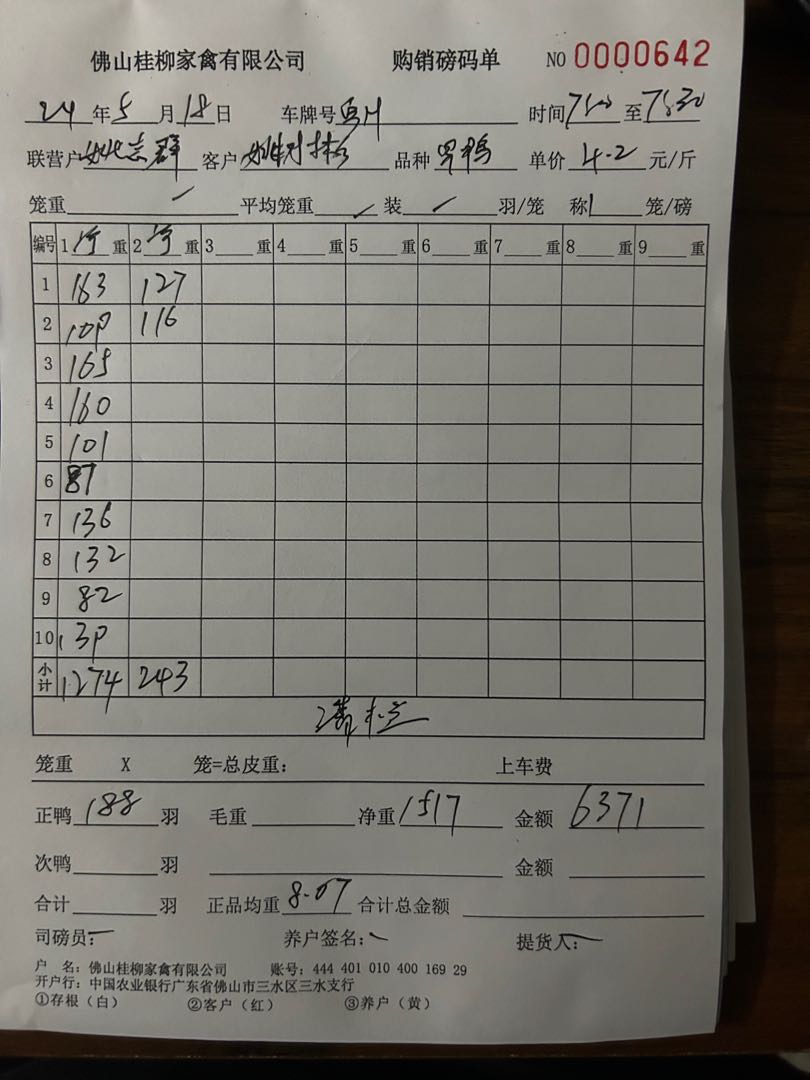 佛山桂柳家禽有限公司 购销磅码单 NO 0000642
24 年 5 月 18 日 车牌号 时间 7:00 至 7:30
联营户 志群 客户 品种 单价 4.2 元/斤
笼重 平均笼重 装 羽/笼 称 1 笼/磅
编号 1 重 2 重 3 重 4 重 5 重 6 重 7 重 8 重 9 重
1 163 127
2 109 116
3 165
4 160
5 101
6 87
7 136
8 132
9 82
10 139
小计 1274 243
笼重 X 笼=总皮重: 上车费
正鸭 188 羽 毛重 净重 1517 金额 6371
次鸭 羽 金额
合计 羽 正品均重 8.07 合计总金额
司磅员: 养户签名: 提货人:
户 名: 佛山桂柳家禽有限公司 账号: 444 401 010 400 169 29
开户行: 中国农业银行广东省佛山市三水区三水支行
①存根(白) ②客户(红) ③养户(黄)